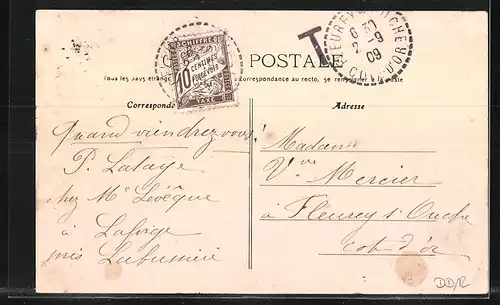 POSTALE
T
FLEUREY-S-OUCHE
6 30
2 -9
09
COTE D'OR
CHIFFRE
10 CENTIMES
À PERCEVOIR
TAXE
Tous les pays étrangers correspondance au recto, se renseigner à la Poste
Correspondance
Adresse
Quand viendrez vous!
P. Lataye
chez Mr Levêque
à Laforge
près Labussière
Madame
Vve Mercier
à Fleurey s/ Ouche
Cot d'or
DD12